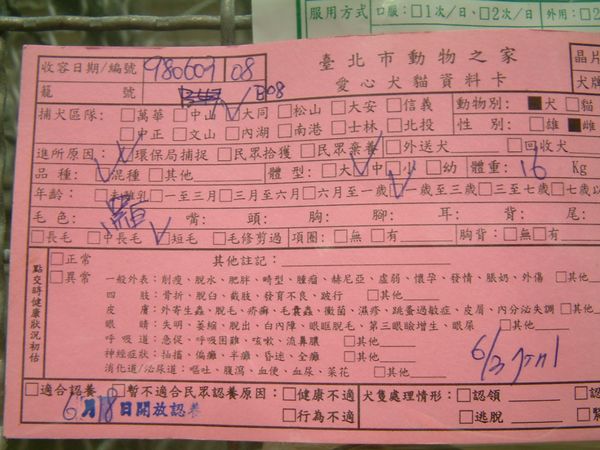 服用方式 口服：□1次／日、□2次／日 □外用：□2
臺北市動物之家
收容日期/編號 980609 08
愛心犬貓資料卡
晶片
犬牌
籠號 B08
捕犬區隊：□萬華 □中山 □大同 □松山 □大安 □信義
動物別：■犬 □貓
□中正 □文山 □內湖 □南港 □士林 □北投
性別：□雄 ■雌
進所原因：□環保局捕捉 □民眾拾獲 □民眾棄養 □外送犬 □回收犬
品種：□混種 □其他 體型：□大 □中 □小 □幼 體重：16 Kg
年齡：□未離乳 □一至三月 □三月至六月 □六月至一歲 □一歲至三歲 □三至七歲 □七歲以
毛色：黑 嘴： 頭： 胸： 腳： 耳： 背： 尾：
□長毛 □中長毛 □短毛 □毛修剪過 項圈：□無 □有 胸背：□無 □有
點交時健康狀況初估
□正常 其他註記：
□異常 一般外表：削瘦、脫水、肥胖、畸型、腫瘤、赫尼亞、虛弱、懷孕、發情、脹奶、外傷 □其他
四肢：骨折、脫臼、截肢、發育不良、跛行 □其他
皮膚：外寄生蟲、脫毛、疥癬、毛囊蟲、黴菌、濕疹、跳蚤過敏症、皮屑、內分泌失調 □其他
眼睛：失明、萎縮、脫出、白內障、眼眶脫毛、第三眼瞼增生、眼屎 □其他
呼吸道：急促、呼吸困難、咳嗽、流鼻膿 □其他
神經症狀：抽搐、偏癱、半癱、昏迷、全癱 □其他
消化道/泌尿道：嘔吐、腹瀉、血便、血尿、菜花 □其他
□適合認養 □暫不適合民眾認養原因：□健康不適 犬隻處理情形：□認領
6月18日開放認養
□行為不適 □逃脫